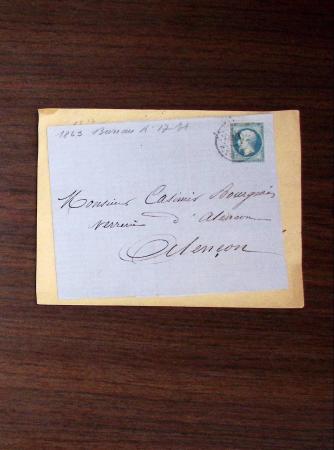 1863 Bureau
Monsieur Casimir Bourgeois
verrerie d'Alencon
Alençon